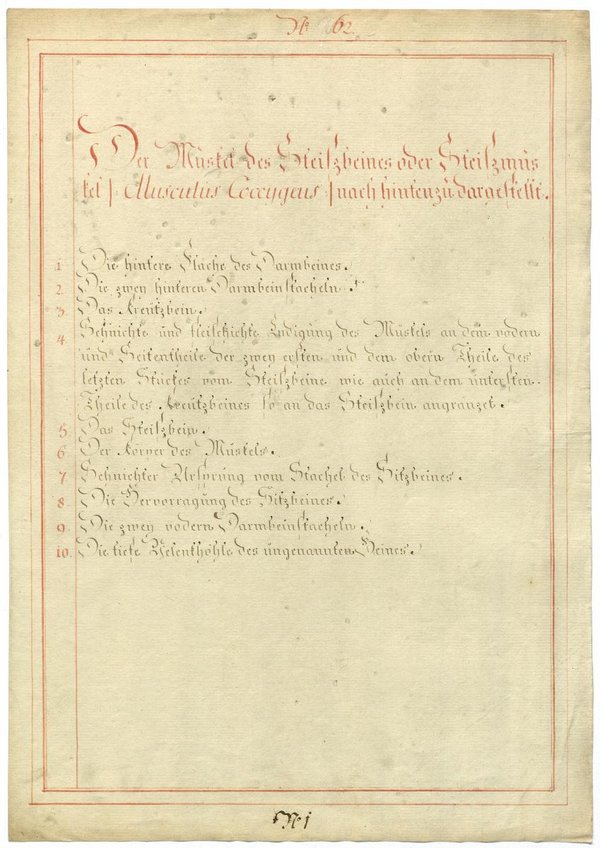 No 62.
Der Muskel des Steiszbeines oder Steiszmus
kel | Musculus Coccygeus | nach hinten zu dargestellt.
1 Die hintere Flache des Darmbeines.
2. Die zwey hinteren Darmbeinstacheln.
3. Das Kreutzbein.
4 Sehnichte und fleischichte Endigung des Muskels an dem vodern
und Seitentheile der zwey ersten und dem obern Theile des
letzten Stuckes vom Steiszbeine wie auch an dem untersten
Theile des Kreutzbeines so an das Steiszbein angränzet.
5 Das Steiszbein.
6 Der Körper des Muskels.
7 Sehnichter Ursprung vom Stachel des Sitzbeines.
8. Die Hervorragung des Sitzbeines.
9. Die zwey vodern Darmbeinstacheln.
10. Die tiefe Gelenkhöhle des ungenannten Beines.
No 1